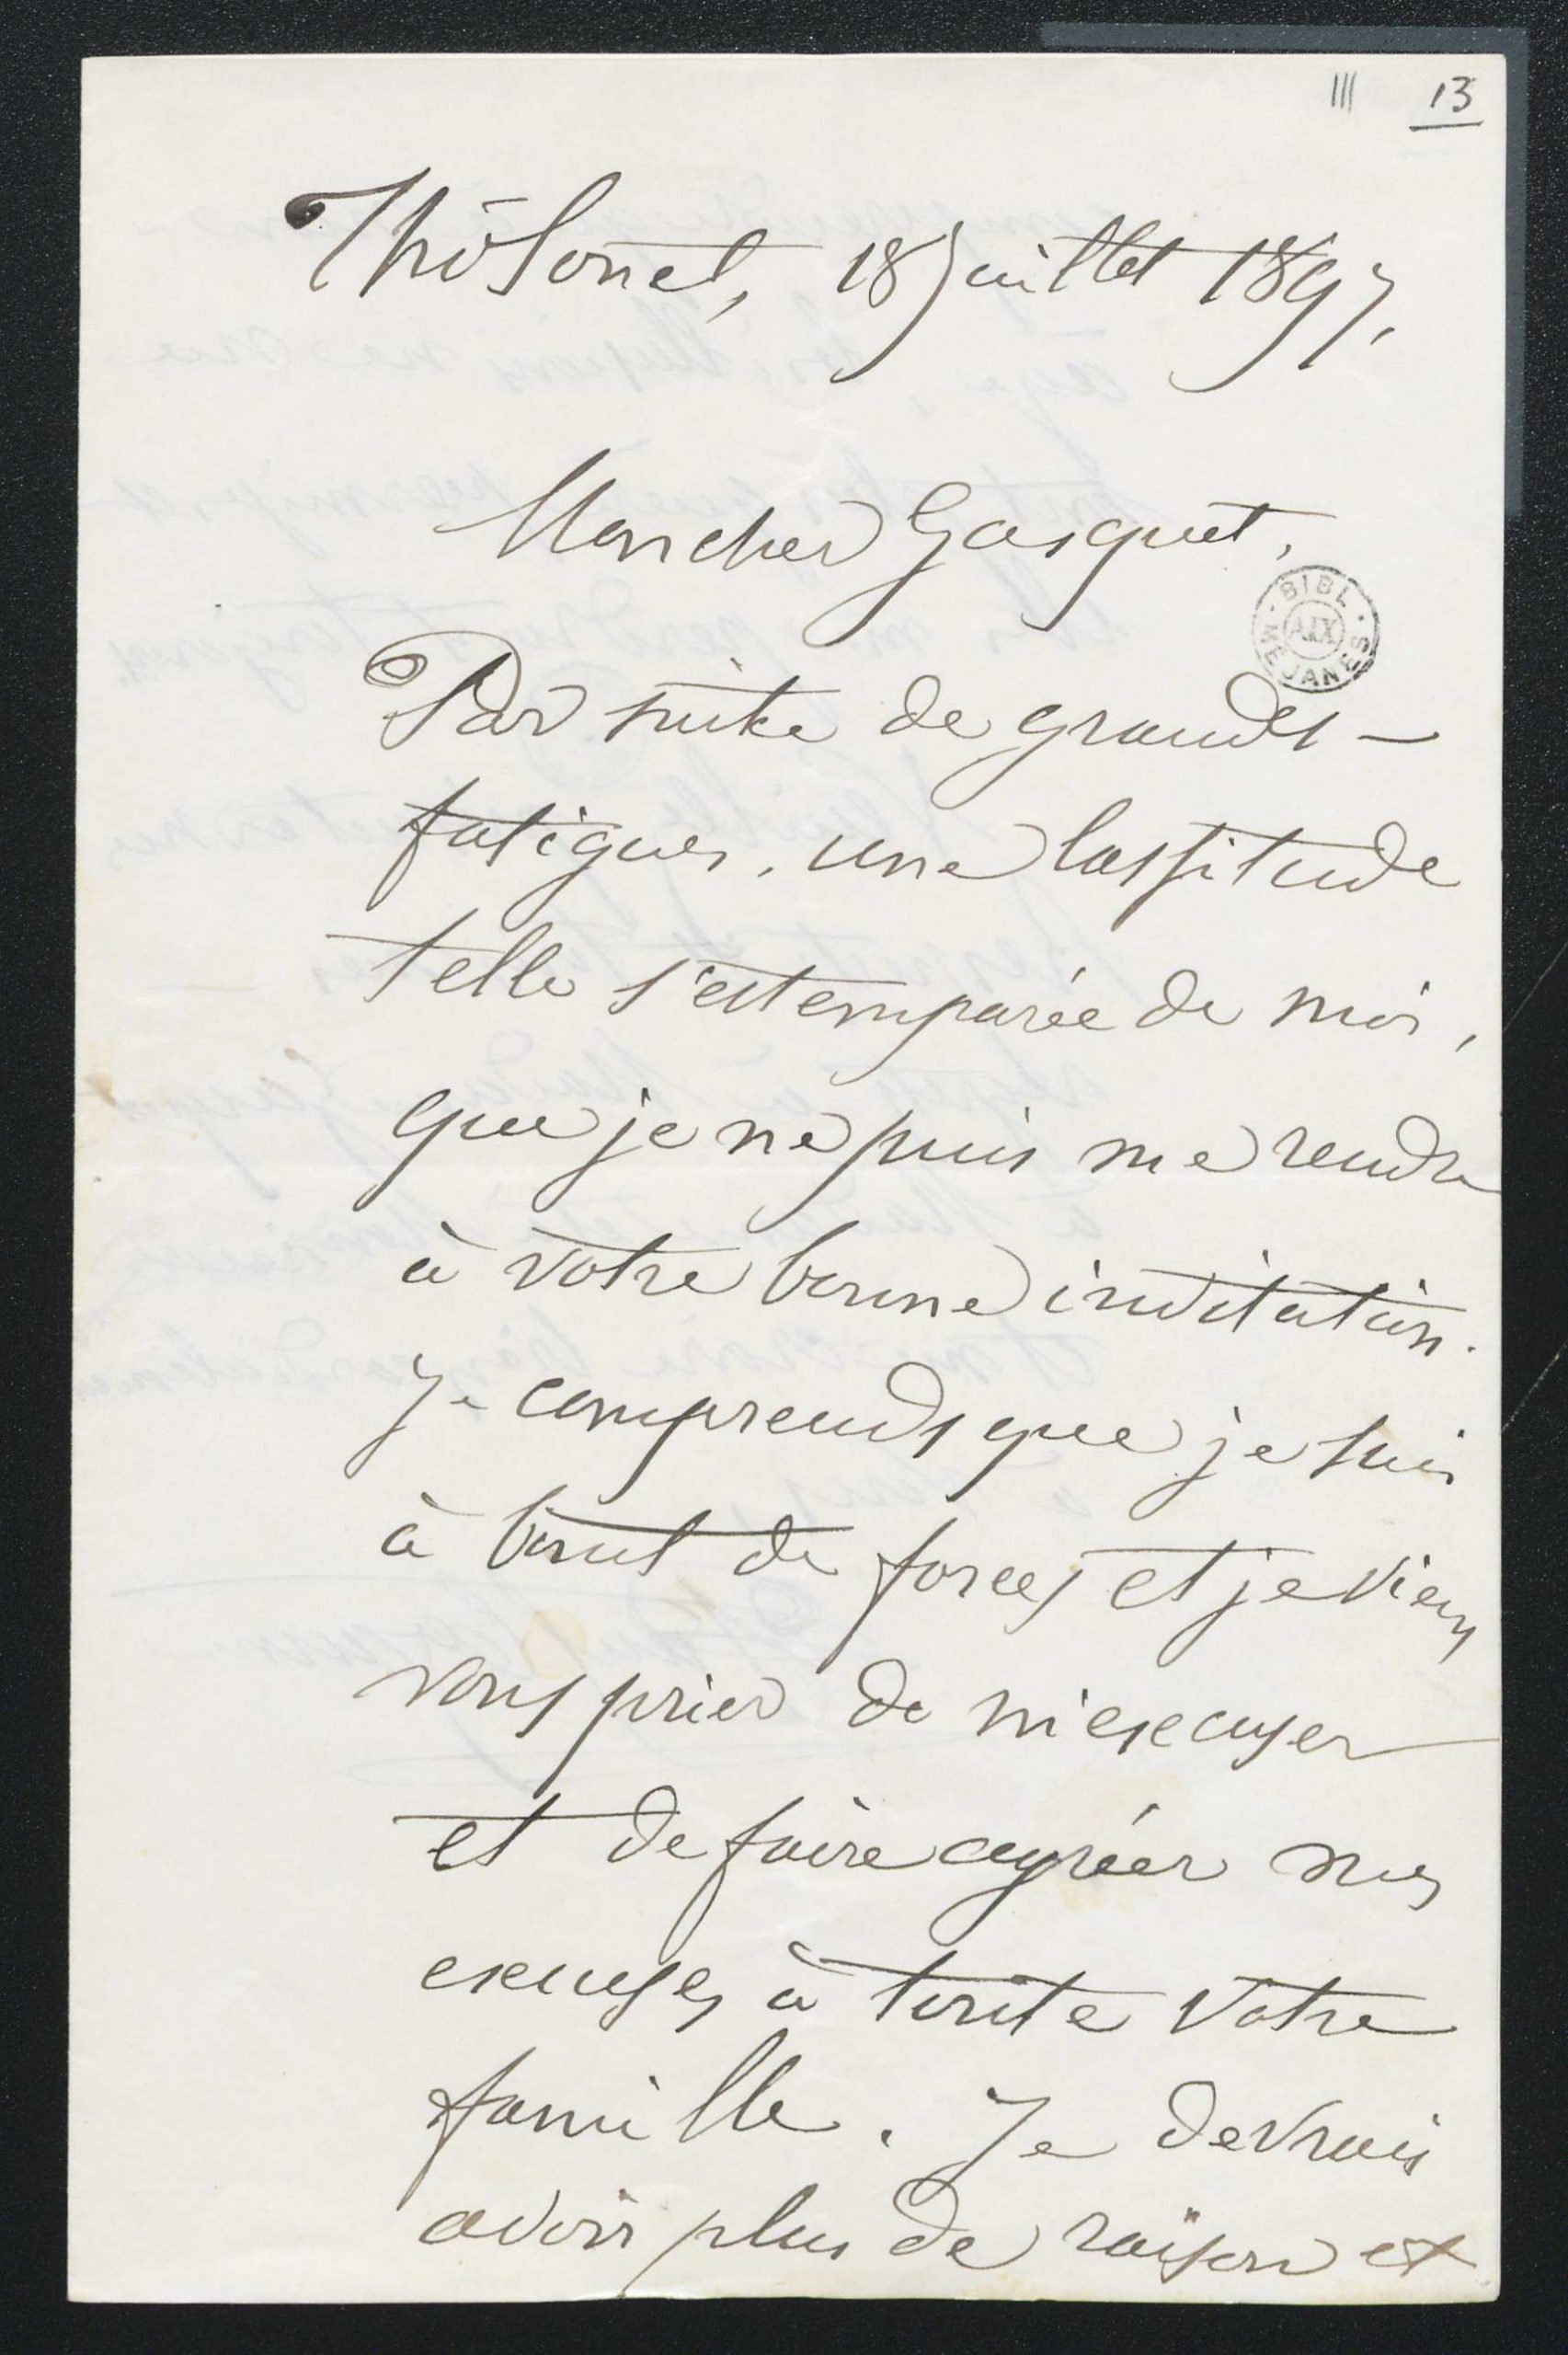 III 13
Thôlonet, 18 Juillet 1897,
Mon cher Gasquet,
BIBL. AIX MEJANES
Par suite de grandes –
fatigues, une lassitude
telle s'est emparée de moi,
que je ne puis me rendre
à votre bonne invitation.
Je comprends que je suis
à bout de forces et je viens
vous prier de m'excuser
et de faire agréer mes
excuses à toute votre
famille. Je devrais
avoir plus de raison et